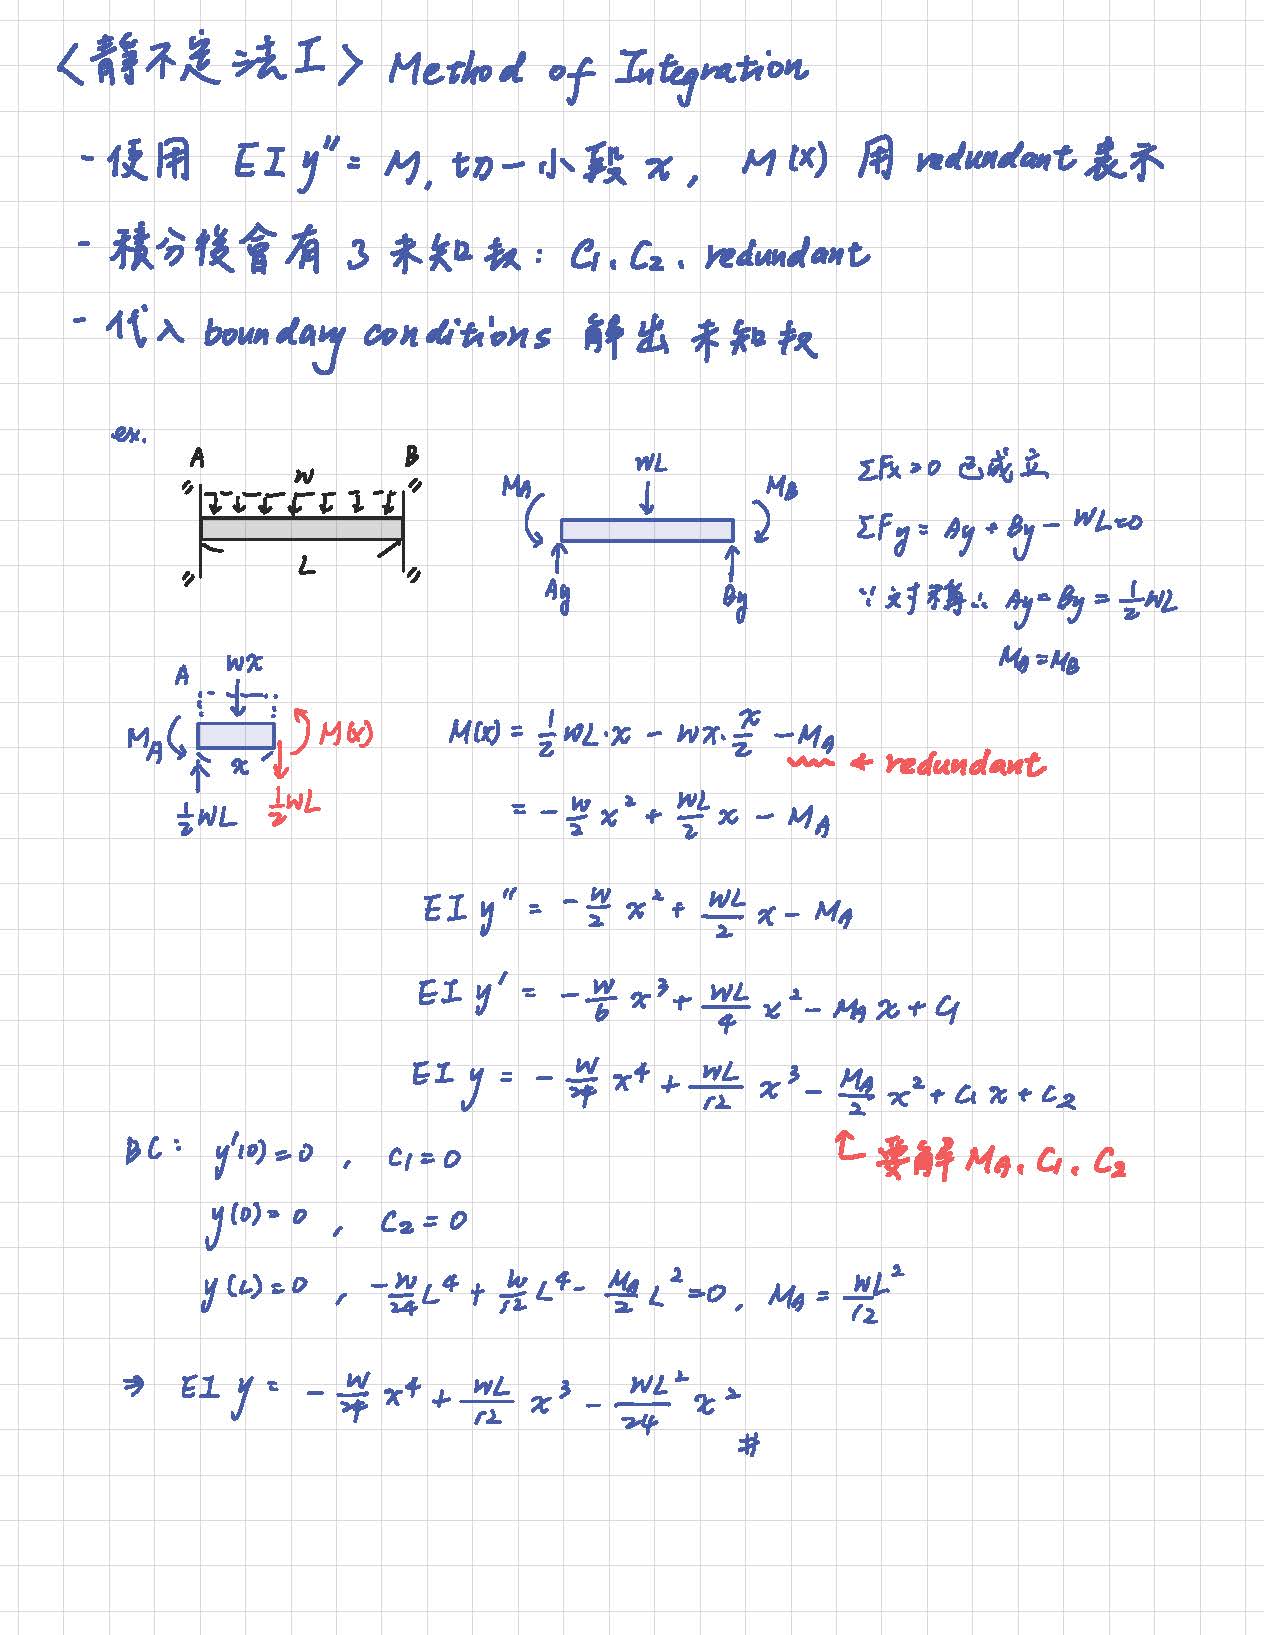 <靜不定法 I> Method of Integration
- 使用 EI y'' = M, 切一小段 x, M(x) 用 redundant 表示
- 積分後會有 3 未知數: C₁、C₂、redundant
- 代入 boundary conditions 解出未知數
ex.
A B
w
L
WL
M_A M_B
Ay By
ΣFx = 0 已成立
ΣFy = Ay + By - WL = 0
∵ 對稱 ∴ Ay = By = 1/2 WL
M_A = M_B
A wx
M_A M(x)
x
1/2 WL 1/2 WL
M(x) = 1/2 WL·x - wx·x/2 - M_A ← redundant
= - w/2 x² + WL/2 x - M_A
EI y'' = - w/2 x² + WL/2 x - M_A
EI y' = - w/6 x³ + WL/4 x² - M_A x + C₁
EI y = - w/24 x⁴ + WL/12 x³ - M_A/2 x² + C₁ x + C₂
↑ 要解 M_A、C₁、C₂
BC: y'(0) = 0 , C₁ = 0
y(0) = 0 , C₂ = 0
y(L) = 0 , - w/24 L⁴ + w/12 L⁴ - M_A/2 L² = 0, M_A = WL²/12
⇒ EI y = - w/24 x⁴ + WL/12 x³ - WL²/24 x² #